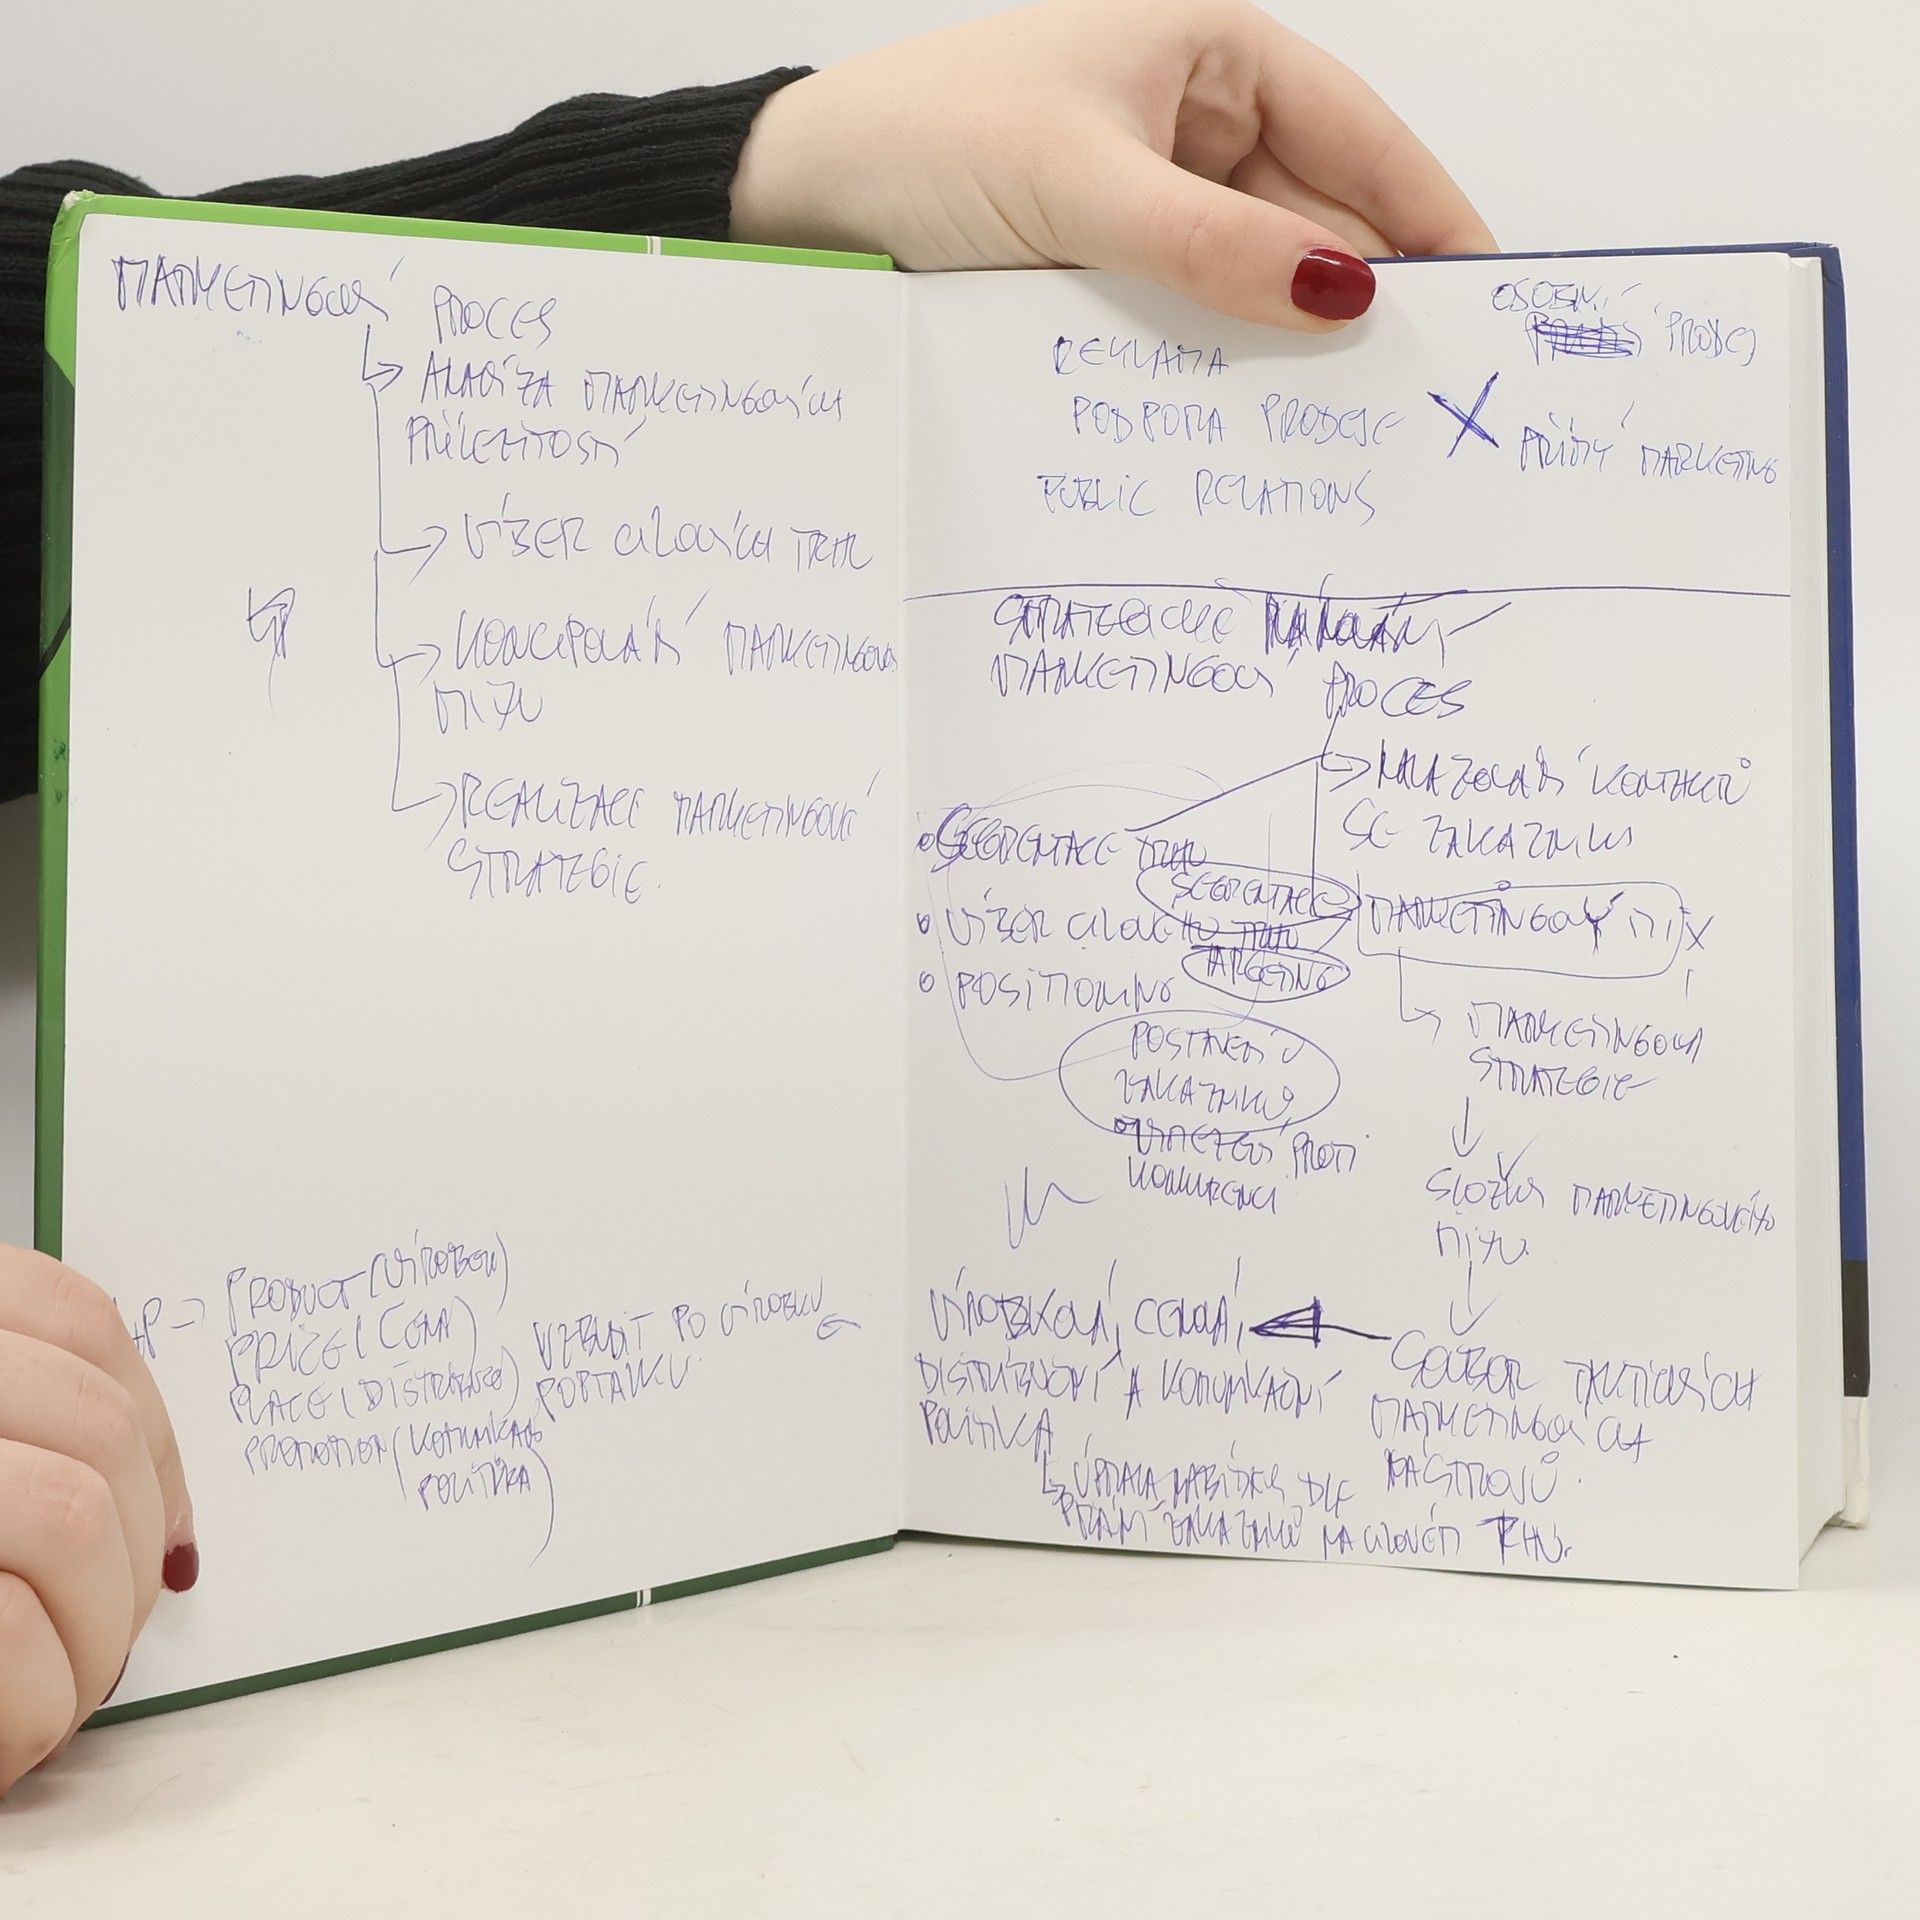 MARKETINGOVÝ PROCES
ANALÝZA MARKETINGOVÝCH
PŘÍLEŽITOSTÍ
VÝBĚR CÍLOVÝCH TRHŮ
KONCIPOVÁNÍ MARKETINGOVÉHO
MIXU
REALIZACE MARKETINGOVÉ
STRATEGIE.
4P → PRODUCT (VÝROBEK)
PRICE (CENA)
PLACE (DISTRIBUCE)
PROMOTION (KOMUNIKAČNÍ
POLITIKA)
VZBUDIT PO VÝROBKU
POPTÁVKU.
OSOBNÍ
PRODEJ
REKLAMA
PODPORA PRODEJE X PŘÍMÝ MARKETING
PUBLIC RELATIONS
STRATEGICKÉ PLÁNOVÁNÍ
MARKETINGOVÝ PROCES
NAVAZOVÁNÍ KONTAKTŮ
SE ZÁKAZNÍKY
SEGMENTACE TRHU
SEGMENTACE
VÝBĚR CÍLOVÉHO TRHU
TARGETING
POSITIONING
MARKETINGOVÝ MIX
MARKETINGOVÁ
STRATEGIE
POSTAVENÍ U
ZÁKAZNÍKŮ,
VYMEZENÍ PROTI
KONKURENCI
SLOŽKY MARKETINGOVÉHO
MIXU.
SOUBOR TAKTICKÝCH
MARKETINGOVÝCH
NÁSTROJŮ.
VÝROBKOVÁ, CENOVÁ,
DISTRIBUČNÍ A KOMUNIKAČNÍ
POLITIKA
ÚPRAVA NABÍDKY DLE
PŘÁNÍ ZÁKAZNÍKŮ NA CÍLOVÉM TRHU.